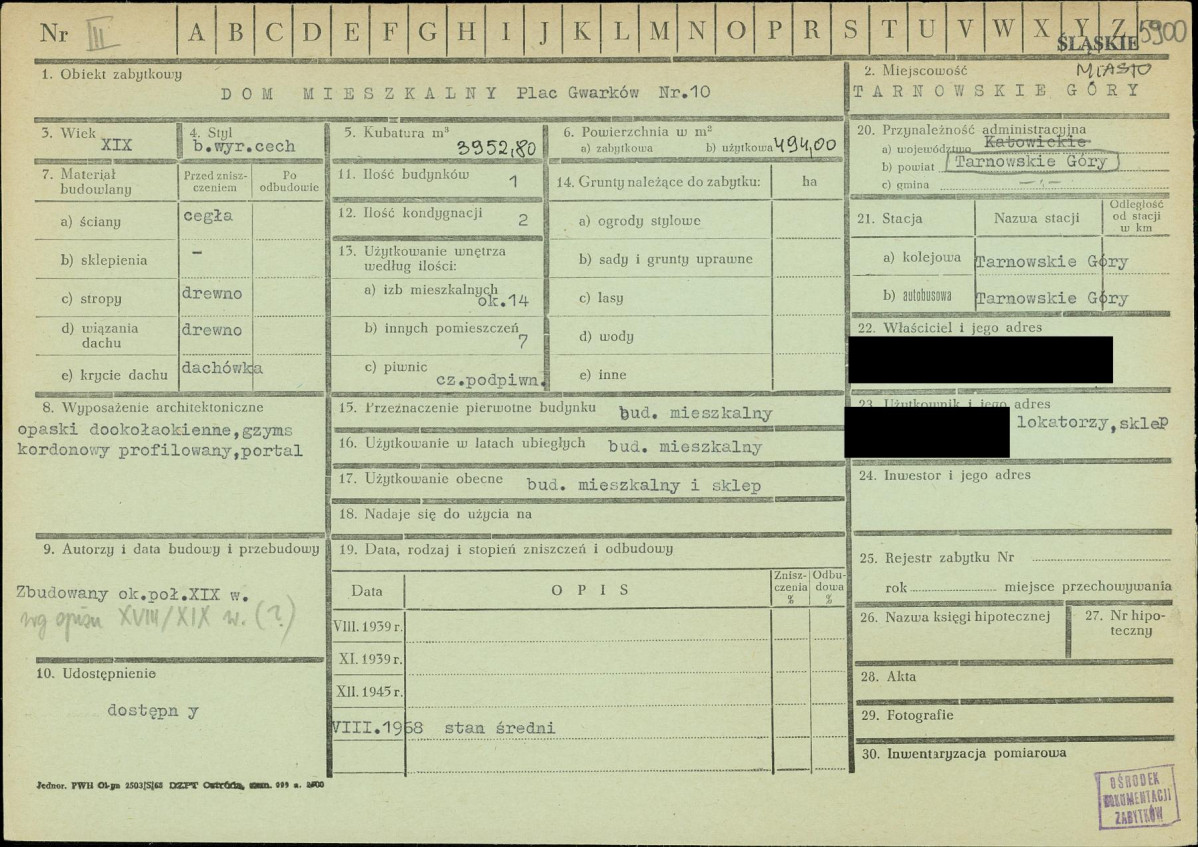 Nr III A B C D E F G H I J K L M N O P R S T U V W X Y Z 5900
ŚLĄSKIE
1. Obiekt zabytkowy
DOM MIESZKALNY Plac Gwarków Nr.10
2. Miejscowość MIASTO
TARNOWSKIE GÓRY
3. Wiek
XIX
4. Styl
b.wyr.cech
5. Kubatura m³
3952,80
6. Powierzchnia w m²
a) zabytkowa b) użytkowa 494,00
20. Przynależność administracyjna
a) województwo Katowickie
b) powiat Tarnowskie Góry
c) gmina -.-
7. Materiał budowlany
Przed zniszczeniem
Po odbudowie
a) ściany cegła
b) sklepienia -
c) stropy drewno
d) wiązania dachu drewno
e) krycie dachu dachówka
11. Ilość budynków 1
12. Ilość kondygnacji 2
13. Użytkowanie wnętrza według ilości:
a) izb mieszkalnych ok.14
b) innych pomieszczeń 7
c) piwnic cz.podpiwn.
14. Grunty należące do zabytku: ha
a) ogrody stylowe
b) sady i grunty uprawne
c) lasy
d) wody
e) inne
21. Stacja
Nazwa stacji
Odległość od stacji w km
a) kolejowa Tarnowskie Góry
b) autobusowa Tarnowskie Góry
22. Właściciel i jego adres
23. Użytkownik i jego adres
lokatorzy,sklep
8. Wyposażenie architektoniczne
opaski dookołaokienne,gzyms
kordonowy profilowany,portal
15. Przeznaczenie pierwotne budynku bud. mieszkalny
16. Użytkowanie w latach ubiegłych bud. mieszkalny
17. Użytkowanie obecne bud. mieszkalny i sklep
18. Nadaje się do użycia na
24. Inwestor i jego adres
9. Autorzy i data budowy i przebudowy
Zbudowany ok.poł.XIX w.
wg opisu XVIII/XIX w. (?)
19. Data, rodzaj i stopień zniszczeń i odbudowy
Data
OPIS
Zniszczenia %
Odbudowa %
VIII. 1939 r.
XI. 1939 r.
XII. 1945 r.
VIII.1968 stan średni
25. Rejestr zabytku Nr
rok miejsce przechowywania
26. Nazwa księgi hipotecznej
27. Nr hipoteczny
28. Akta
29. Fotografie
30. Inwentaryzacja pomiarowa
10. Udostępnienie
dostępn y
Jednor. PWH Ol-yn 2503/S/65 DZPT Ostróda, zam. 699 n.
OŚRODEK
DOKUMENTACJI
ZABYTKÓW